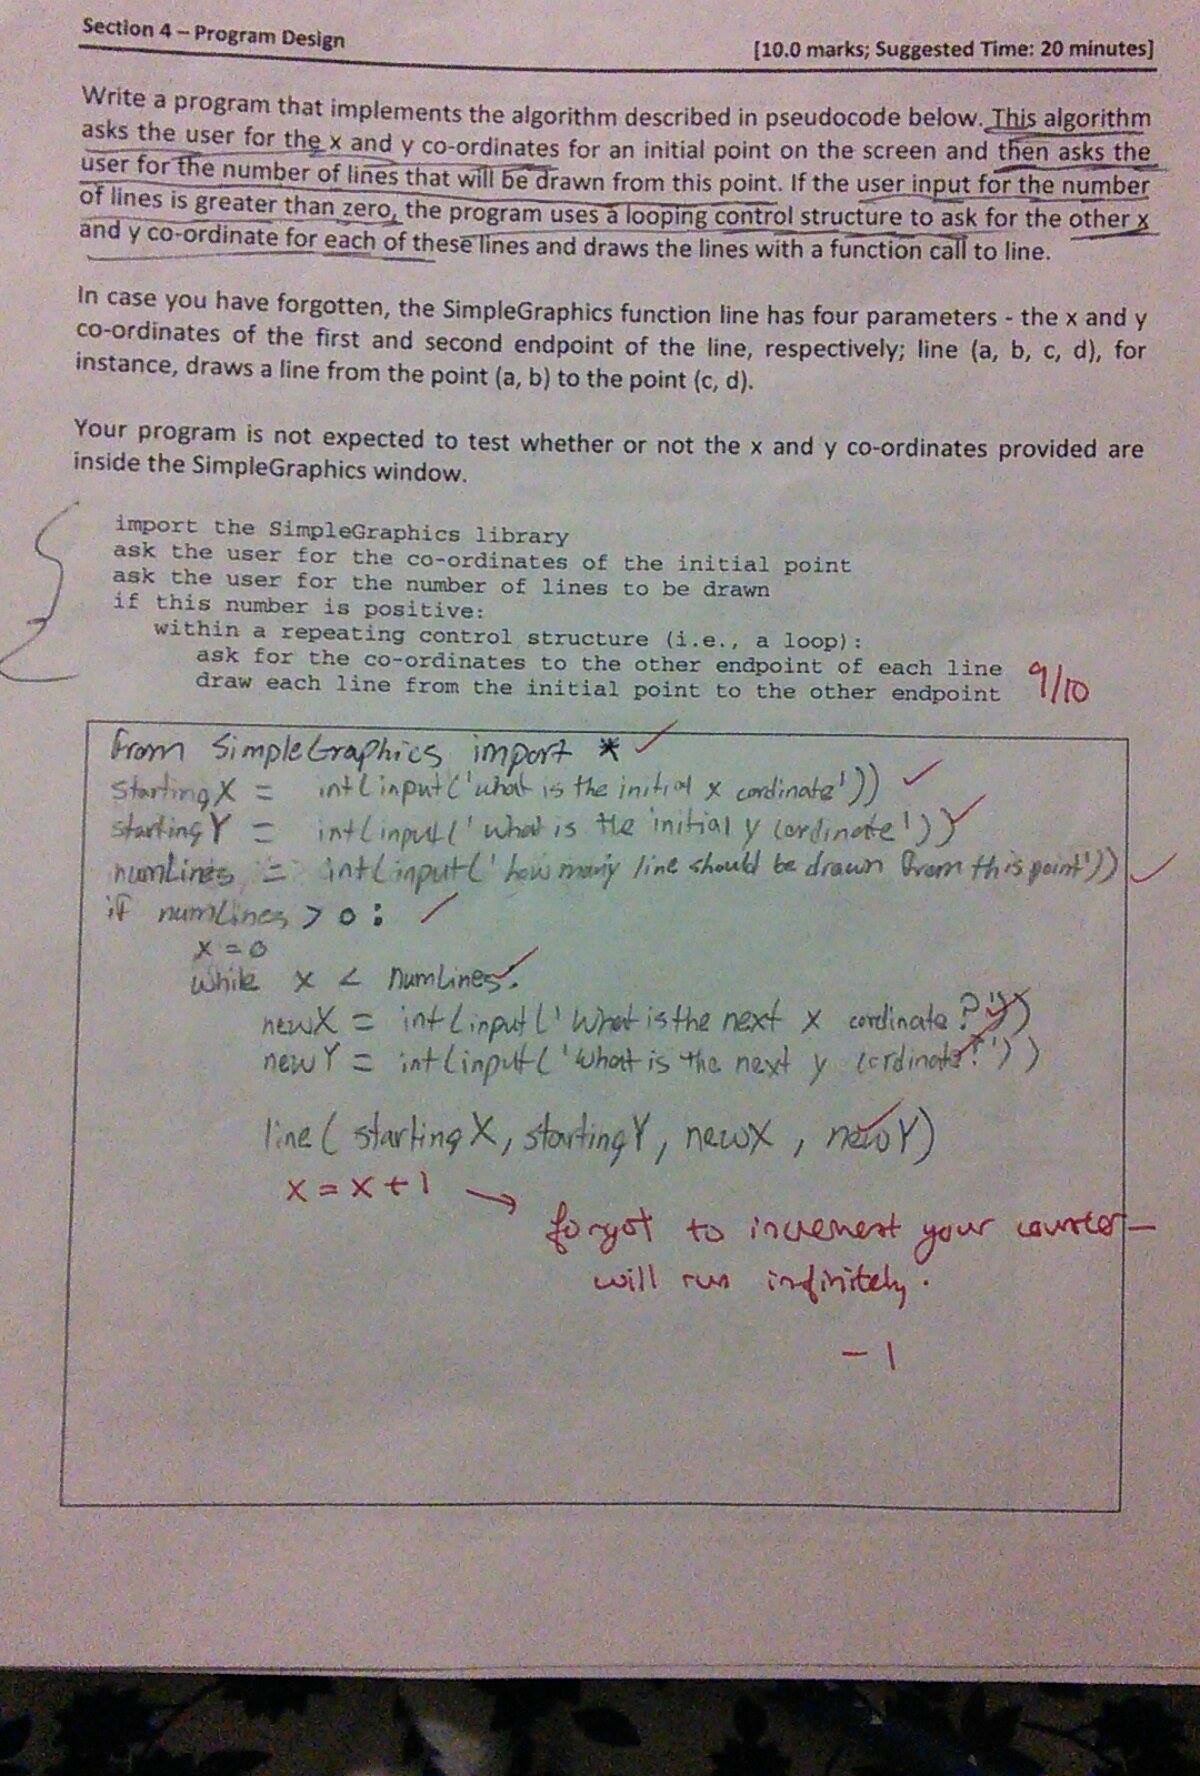 Section 4 – Program Design
[10.0 marks; Suggested Time: 20 minutes]
Write a program that implements the algorithm described in pseudocode below. This algorithm
asks the user for the x and y co-ordinates for an initial point on the screen and then asks the
user for the number of lines that will be drawn from this point. If the user input for the number
of lines is greater than zero, the program uses a looping control structure to ask for the other x
and y co-ordinate for each of these lines and draws the lines with a function call to line.
In case you have forgotten, the SimpleGraphics function line has four parameters - the x and y
co-ordinates of the first and second endpoint of the line, respectively; line (a, b, c, d), for
instance, draws a line from the point (a, b) to the point (c, d).
Your program is not expected to test whether or not the x and y co-ordinates provided are
inside the SimpleGraphics window.
import the SimpleGraphics library
ask the user for the co-ordinates of the initial point
ask the user for the number of lines to be drawn
if this number is positive:
within a repeating control structure (i.e., a loop):
ask for the co-ordinates to the other endpoint of each line
draw each line from the initial point to the other endpoint
9/10
from SimpleGraphics import *
startingX = int(input('what is the initial x cordinate'))
startingY = int(input('what is the initial y cordinate'))
numLines = int(input('how many line should be drawn from this point'))
if numLines > 0:
x = 0
while x < numLines:
newX = int(input('What is the next x cordinate?'))
newY = int(input('What is the next y cordinate?'))
line( startingX, startingY, newX, newY)
x = x + 1 →
forgot to increment your counter –
will run infinitely.
– 1